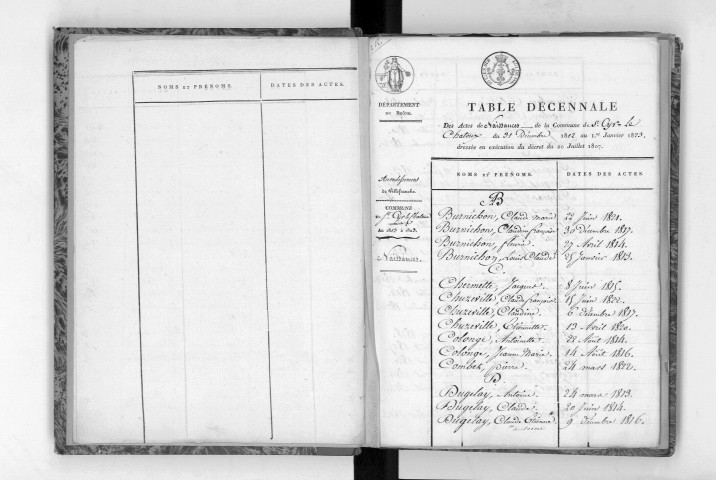 NOMS ET PRÉNOMS. DATES DES ACTES.
DÉPARTEMENT
DU RHÔNE.
Arrondissement
de Villefranche.
COMMUNE
de 1813 à 1823.
Naissances.
TABLE DÉCENNALE
Des Actes de Naissances de la Commune de St Cyr le
Chatoux du 31 Décembre 1812 au 1.er Janvier 1823,
dressée en exécution du décret du 20 Juillet 1807.
NOMS ET PRÉNOMS. DATES DES ACTES.
B
Burnichon, Claude Marie 22 Juin 1821.
Burnichon, Claudine françoise 30 Décembre 1817.
Burnichon, fleurie. 27 Avril 1814.
Burnichon, Louis Claude 25 Janvier 1813.
C.
Chermette, Jacques. 8 Juin 1815.
Chuzeville, Claude françoise 15 Juin 1822.
Chuzeville, Claudine. 6 Décembre 1817.
Chuzeville, 13 Avril 1820.
Colonge, Antoinette. 22 Août 1814.
Colonge, Jeanne Marie. 14 Août 1816.
Combet, pierre. 24 mars 1822.
D.
Dugelay, Antoine. 24 mars 1813.
Dugelay, Claude. 20 Juin 1814.
Dugelay, Claude Étienne 9 Décembre 1816.